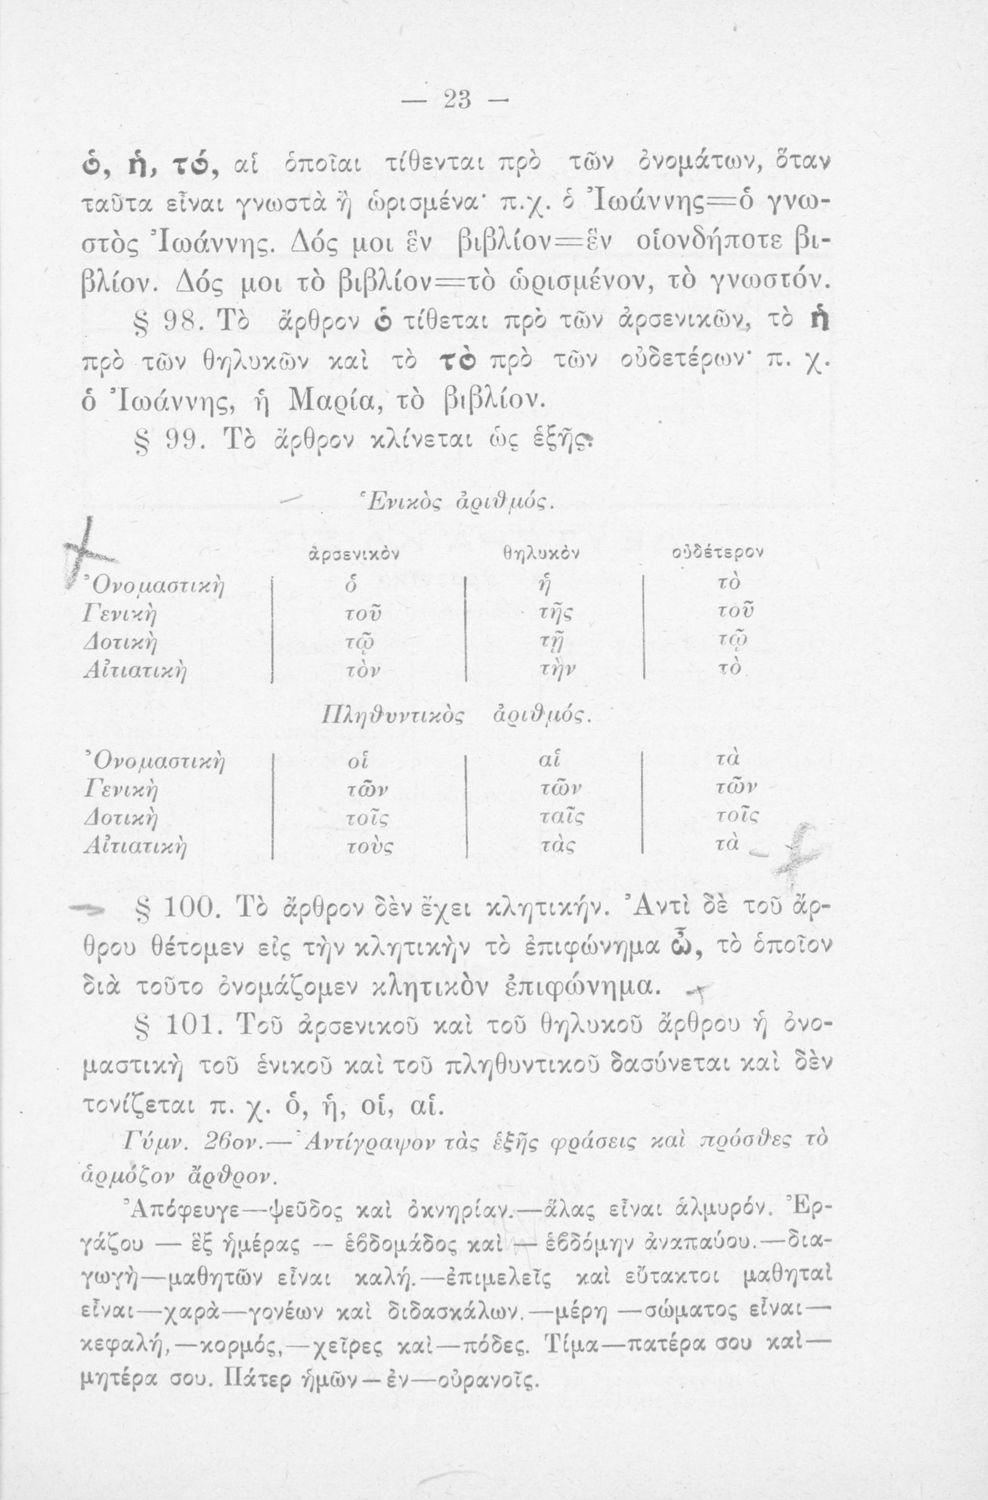 — 23 —
ὁ, ἡ, τό, αἱ ὁποῖαι τίθενται πρὸ τῶν ὀνομάτων, ὅταν
ταῦτα εἶναι γνωστὰ ἢ ὡρισμένα· π.χ. ὁ Ἰωάννης=ὁ γνω-
στὸς Ἰωάννης. Δός μοι ἓν βιβλίον=ἓν οἱονδήποτε βι-
βλίον. Δός μοι τὸ βιβλίον=τὸ ὡρισμένον, τὸ γνωστόν.
§ 98. Τὸ ἄρθρον ὁ τίθεται πρὸ τῶν ἀρσενικῶν, τὸ ἡ
πρὸ τῶν θηλυκῶν καὶ τὸ τὸ πρὸ τῶν οὐδετέρων· π. χ.
ὁ Ἰωάννης, ἡ Μαρία, τὸ βιβλίον.
§ 99. Τὸ ἄρθρον κλίνεται ὡς ἑξῆς·
Ἑνικὸς ἀριθμός.
ἀρσενικὸν θηλυκὸν οὐδέτερον
Ὀνομαστικὴ ὁ ἡ τὸ
Γενικὴ τοῦ τῆς τοῦ
Δοτικὴ τῷ τῇ τῷ
Αἰτιατικὴ τὸν τὴν τὸ
Πληθυντικὸς ἀριθμός.
Ὀνομαστικὴ οἱ αἱ τὰ
Γενικὴ τῶν τῶν τῶν
Δοτικὴ τοῖς ταῖς τοῖς
Αἰτιατικὴ τοὺς τὰς τὰ
§ 100. Τὸ ἄρθρον δὲν ἔχει κλητικήν. Ἀντὶ δὲ τοῦ ἄρ-
θρου θέτομεν εἰς τὴν κλητικὴν τὸ ἐπιφώνημα ὦ, τὸ ὁποῖον
διὰ τοῦτο ὀνομάζομεν κλητικὸν ἐπιφώνημα.
§ 101. Τοῦ ἀρσενικοῦ καὶ τοῦ θηλυκοῦ ἄρθρου ἡ ὀνο-
μαστικὴ τοῦ ἑνικοῦ καὶ τοῦ πληθυντικοῦ δασύνεται καὶ δὲν
τονίζεται π. χ. ὁ, ἡ, οἱ, αἱ.
Γύμν. 26ον.—Ἀντίγραψον τὰς ἑξῆς φράσεις καὶ πρόσθες τὸ
ἁρμόζον ἄρθρον.
Ἀπόφευγε—ψεῦδος καὶ ὀκνηρίαν.—ἅλας εἶναι ἁλμυρόν. Ἐρ-
γάζου — ἓξ ἡμέρας — ἑβδομάδος καὶ — ἑβδόμην ἀναπαύου.—δια-
γωγὴ—μαθητῶν εἶναι καλή.—ἐπιμελεῖς καὶ εὔτακτοι μαθηταὶ
εἶναι—χαρὰ—γονέων καὶ διδασκάλων.—μέρη —σώματος εἶναι—
κεφαλή,—κορμός,—χεῖρες καὶ—πόδες. Τίμα—πατέρα σου καὶ—
μητέρα σου. Πάτερ ἡμῶν—ἐν—οὐρανοῖς.